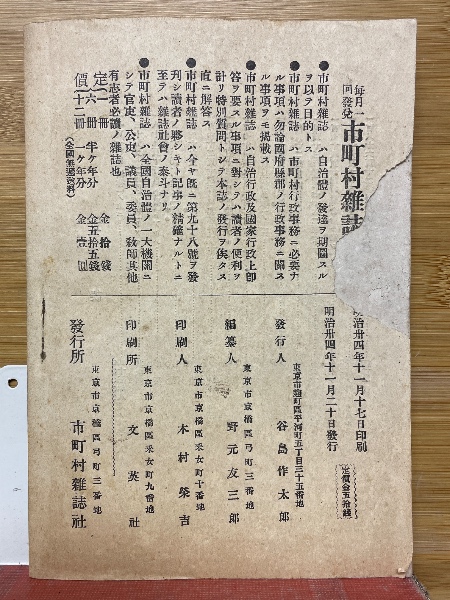 毎月一回發兌 市町村雜誌
●市町村雜誌ハ自治體ノ發達ヲ期圖スル
ヲ以テ目的トス
●市町村雜誌ハ市町村行政事務ニ必要ナ
ル事項ハ勿論國府縣郡ノ行政事務ニ關ス
ル事項ヲモ掲載ス
●市町村雜誌ハ自治行政及國家行政上卽
答ヲ要スル事項ニ對シテハ讀者ノ便利ヲ
計リ特別質問トシテ本誌ノ發行ヲ俟タス
直ニ解答ス
●市町村雜誌ハ今ヤ既ニ第九十八號ヲ發
刋シ讀者ノ夥シキト記事ノ精確ナルトニ
至テハ雜誌社會ノ泰斗ナリ
●市町村雜誌ハ全國自治體ノ一大機關ニ
シテ官吏、公吏、議員、委員、敎師其他
有志者必讀ノ雜誌也
定價
一冊 金拾錢
六冊 半ケ年分 金五拾五錢
十二冊 一ケ年分 金壹圓
(全國無遞送料)
明治卅四年十一月十七日印刷
明治卅四年十一月二十日發行
定價金五拾錢
東京市麹町區平河町五丁目三十五番地
發行人 谷島作太郎
東京市京橋區弓町三番地
編纂人 野元友三郎
東京市京橋區采女町十番地
印刷人 木村榮吉
東京市京橋區采女町九番地
印刷所 文英社
東京市京橋區弓町三番地
發行所 市町村雜誌社